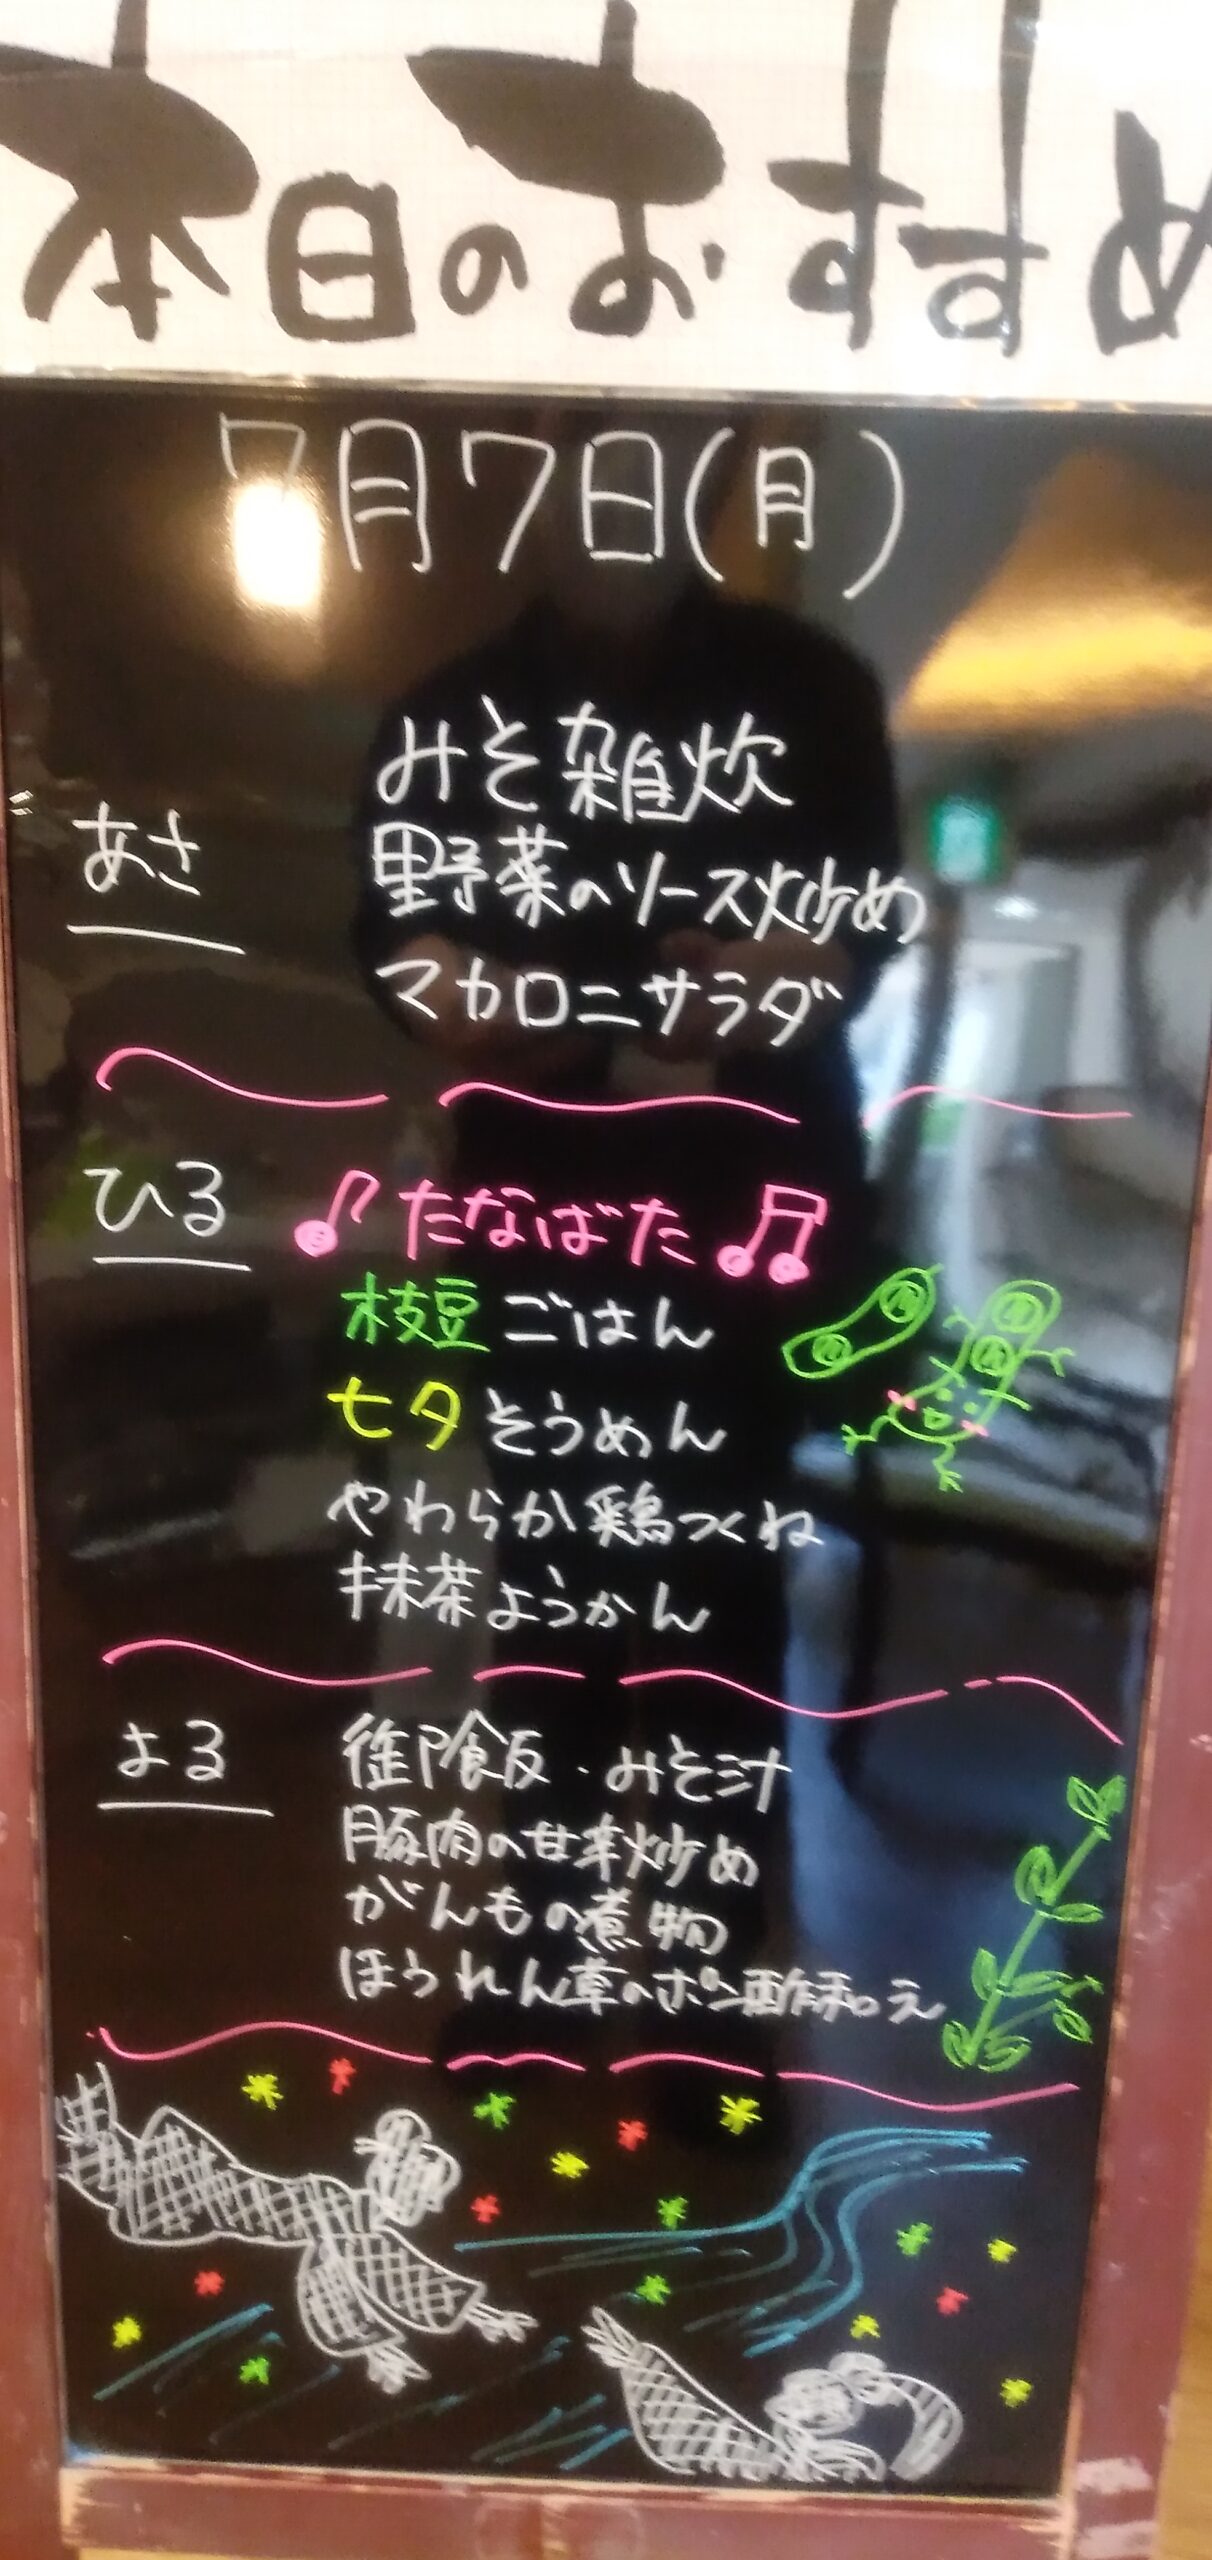 本日のおすすめ
7月7日(月)
あさ
みそ雑炊
野菜のソース炒め
マカロニサラダ
ひる
たなばた
枝豆ごはん
七夕そうめん
やわらか鶏つくね
抹茶ようかん
よる
飯・みそ汁
豚肉の甘辛炒め
がんもの煮物
ほうれん草のポン酢和え